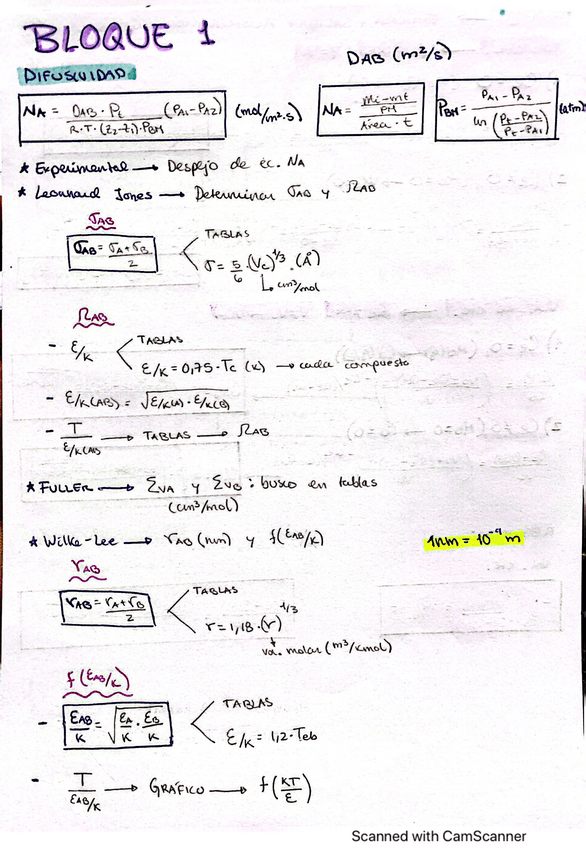 BLOQUE 1
DIFUSIVIDAD
DAB (m²/s)
NA = DAB · Pt / R·T·(Z2-Z1)·PBM (PA1-PA2) (mol/m²·s)
NA = (mi-mt / PM) / Área · t
PBM = PA1 - PA2 / ln (Pt-PA2 / Pt-PA1) (atm)
* Experimental → Despejo de ec. NA
* Leonnard Jones → Determinar σAB y ΩAB
σAB
σAB = σA+σB / 2
TABLAS
σ = 5/6 (Vc)^1/3 · (Å)
↳ cm³/mol
ΩAB
- ε/K
TABLAS
ε/K = 0,75·Tc (K) → cada compuesto
- ε/K(AB) = √ε/K(A) · ε/K(B)
- T / ε/K(AB) → TABLAS → ΩAB
* FULLER → ΣVA y ΣVB : busco en tablas
(cm³/mol)
* Wilke-Lee → rAB (nm) y f(εAB/K)
1nm = 10⁻⁹ m
rAB
rAB = rA+rB / 2
TABLAS
r = 1,18·(V)^1/3
vol. molar (m³/kmol)
f(εAB/K)
- εAB/K = √εA/K · εB/K
TABLAS
ε/K = 1,2·Teb
- T / εAB/K → GRÁFICO → f(KT/ε)
Scanned with CamScanner